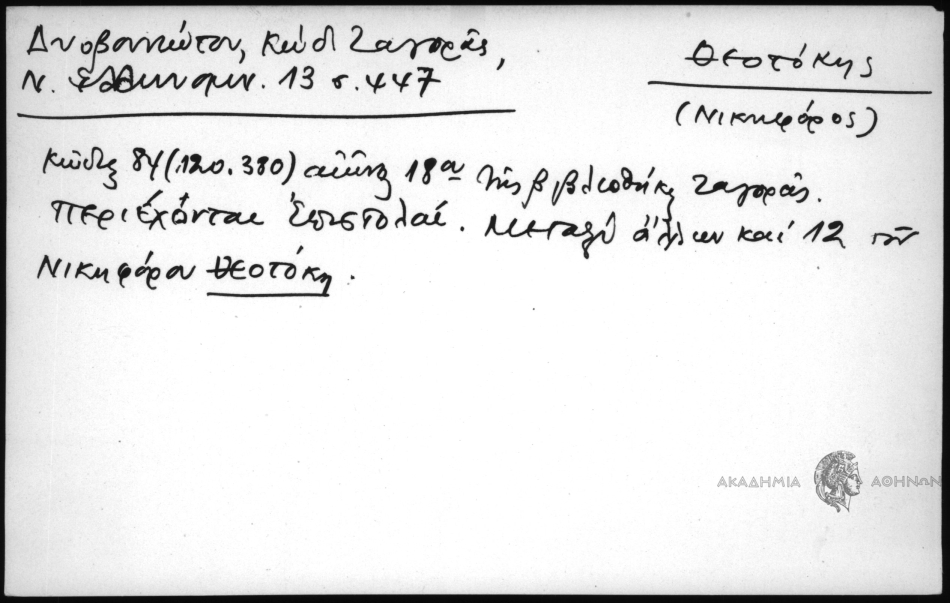 Δυοβουνιώτου, Κώδ Ζαγορᾶς,
Ν. Ἑλληνομν. 13 σ. 447
Θεοτόκης
(Νικηφόρος)
Κῶδιξ 84 (120. 380) αἰῶνος 18ου τῆς βιβλιοθήκης Ζαγορᾶς.
Περιέχονται Ἐπιστολαί. Μεταξύ ἄλλων καί 12 τοῦ
Νικηφόρου Θεοτόκη.
ΑΚΑΔΗΜΙΑ ΑΘΗΝΩΝ